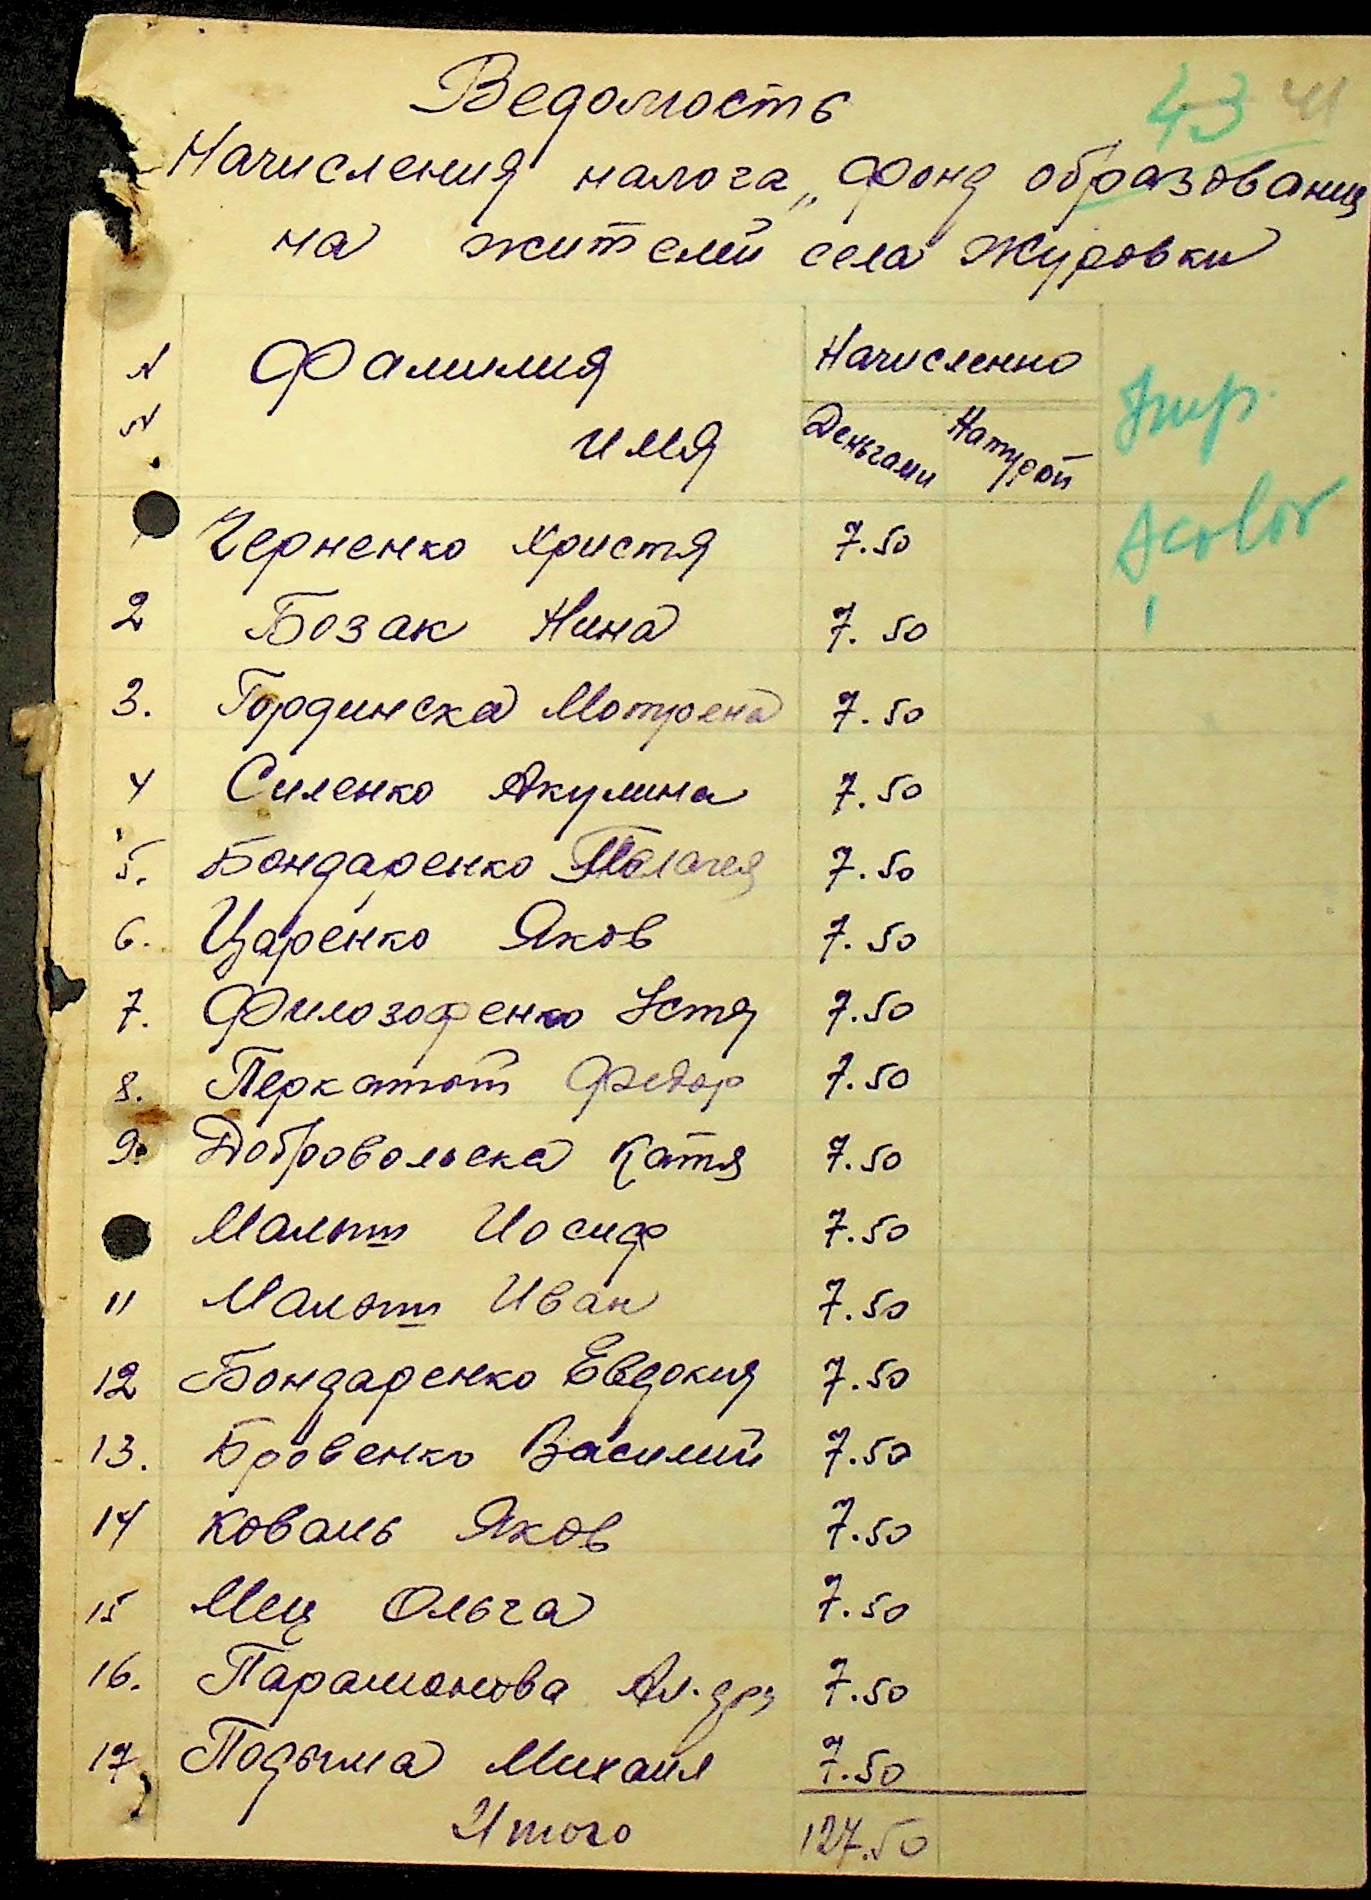 43 41
Ведомость
Начисления налога „Фонд образования
на жителей села Журовки
N Фамилия Начисленно
N имя Деньгами Натурой
Imp.
Scolar
Черненко Христя 7.50
2 Бозак Нина 7.50
3. Гординска Мотрена 7.50
4 Силенко Акулина 7.50
5. Бондаренко Пелагея 7.50
6. Царенко Яков 7.50
7. Филозофенко Устя 7.50
8. Перкатют Федор 7.50
9. Добровольска Катя 7.50
Малют Иосиф 7.50
11 Малют Иван 7.50
12 Бондаренко Евдокия 7.50
13. Бровенко Василий 7.50
14 Коваль Яков 7.50
15 Мец Ольга 7.50
16. Парамонова Ал-дра 7.50
17 Подыма Михаил 7.50
Итого 127.50